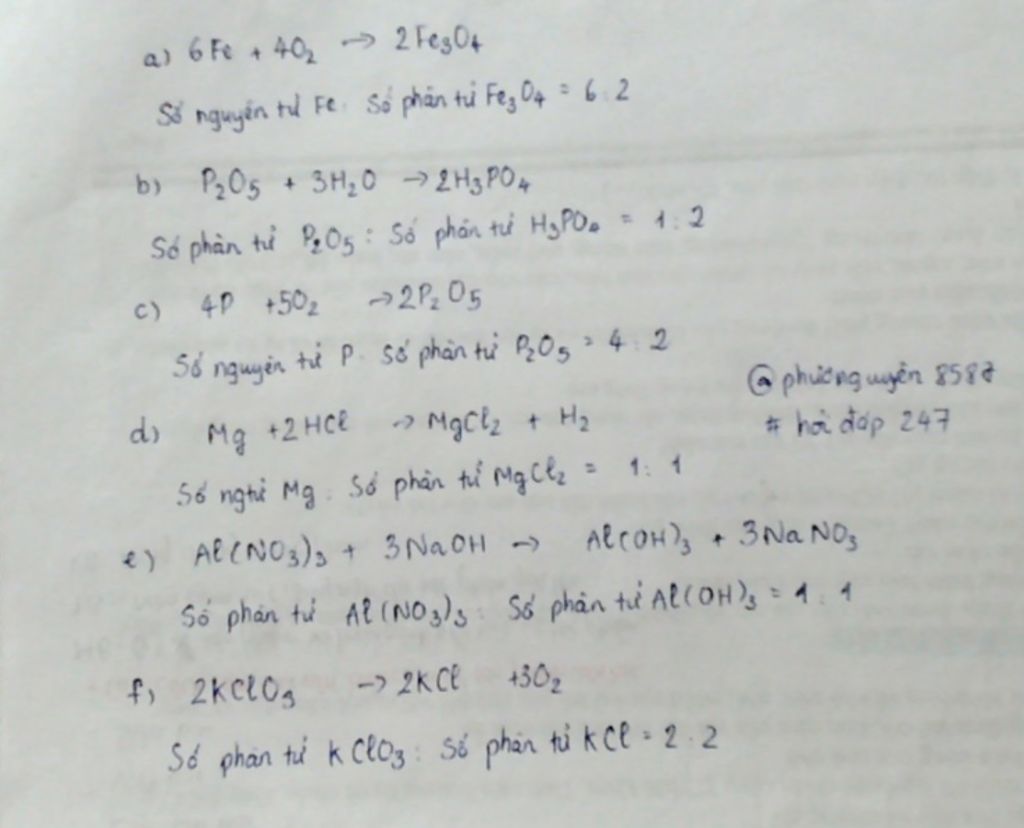 a) 6Fe + 4O₂ → 2Fe₃O₄
Số nguyên tử Fe : Số phân tử Fe₃O₄ = 6 : 2
b) P₂O₅ + 3H₂O → 2H₃PO₄
Số phân tử P₂O₅ : Số phân tử H₃PO₄ = 1 : 2
c) 4P + 5O₂ → 2P₂O₅
Số nguyên tử P : Số phân tử P₂O₅ = 4 : 2
@phươnguyên 8587
d) Mg + 2HCl → MgCl₂ + H₂
# hỏi đáp 247
Số ngtử Mg : Số phân tử MgCl₂ = 1 : 1
e) Al(NO₃)₃ + 3NaOH → Al(OH)₃ + 3NaNO₃
Số phân tử Al(NO₃)₃ : Số phân tử Al(OH)₃ = 1 : 1
f) 2KClO₃ → 2KCl + 3O₂
Số phân tử KClO₃ : Số phân tử KCl = 2 : 2